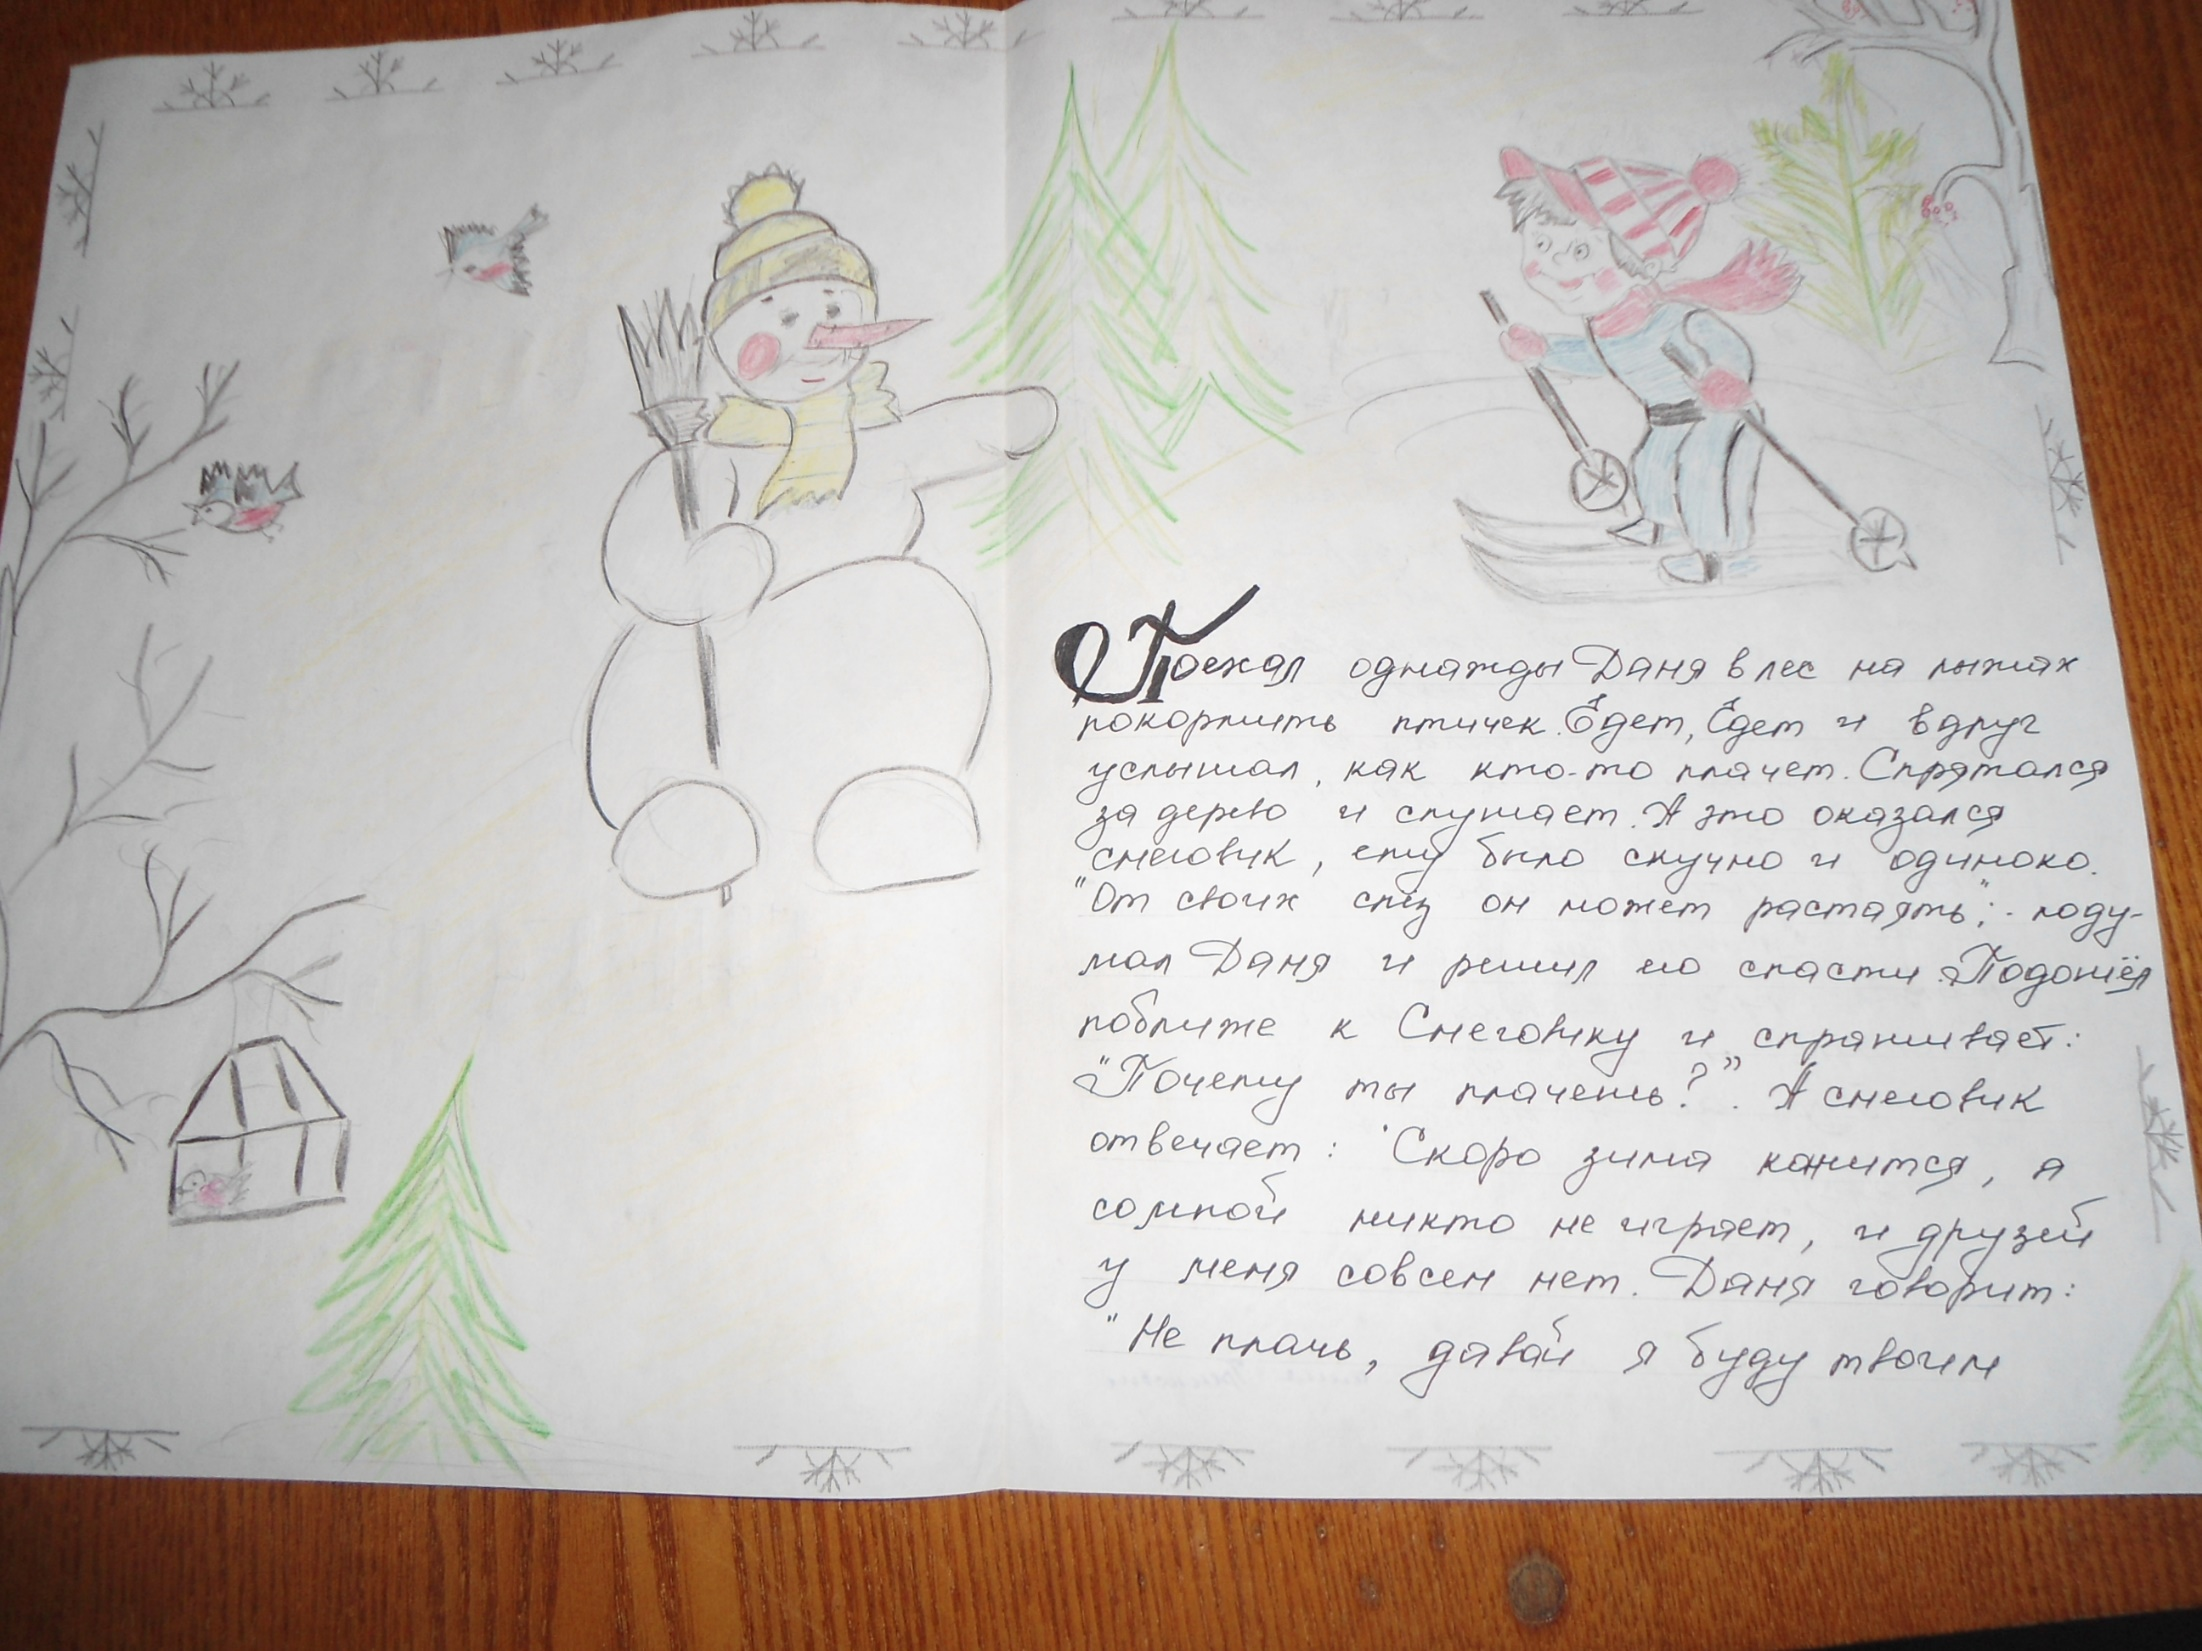 Поехал однажды Даня в лес на лыжах
покормить птичек. Едет, Едет и вдруг
услышал, как кто-то плачет. Спрятался
за дерево и слушает. А это оказался
снеговик, ему было скучно и одиноко.
"От своих слёз он может растаять", - поду-
мал Даня и решил его спасти. Подошёл
поближе к Снеговику и спрашивает:
"Почему ты плачешь?". А снеговик
отвечает: "Скоро зима кончится, а
со мной никто не играет, и друзей
у меня совсем нет. Даня говорит:
"Не плачь, давай я буду твоим